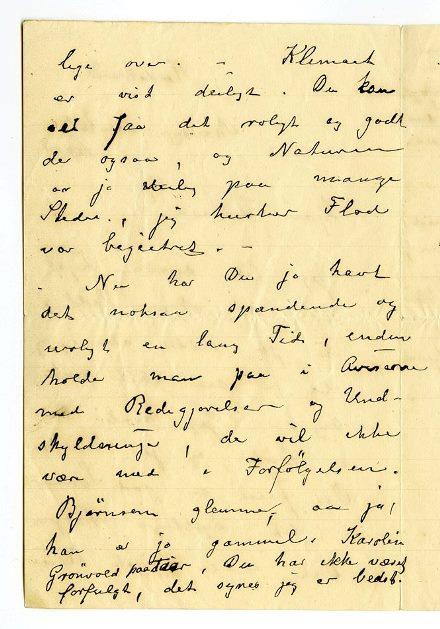 lige over. – Klimaet
er vist deiligt. Du kan
faa det roligt og godt
der ogsaa, og Naturen
er jo deilig paa mange
Steder, jeg husker Flod
var begeistret. –
– Nu har Du jo havt
det noksaa spændende og
uroligt en lang Tid, enden
holde man paa i Aviserne
med Redegjørelser og Und-
skyldninger, de vil ikke
være med i Forfölgelsen.
Bjørnson glemme, aa ja,
han er jo gammel. Karoline
Grönvold paastaar, Du har ikke været
forfulgt, det synes jeg er bedst.